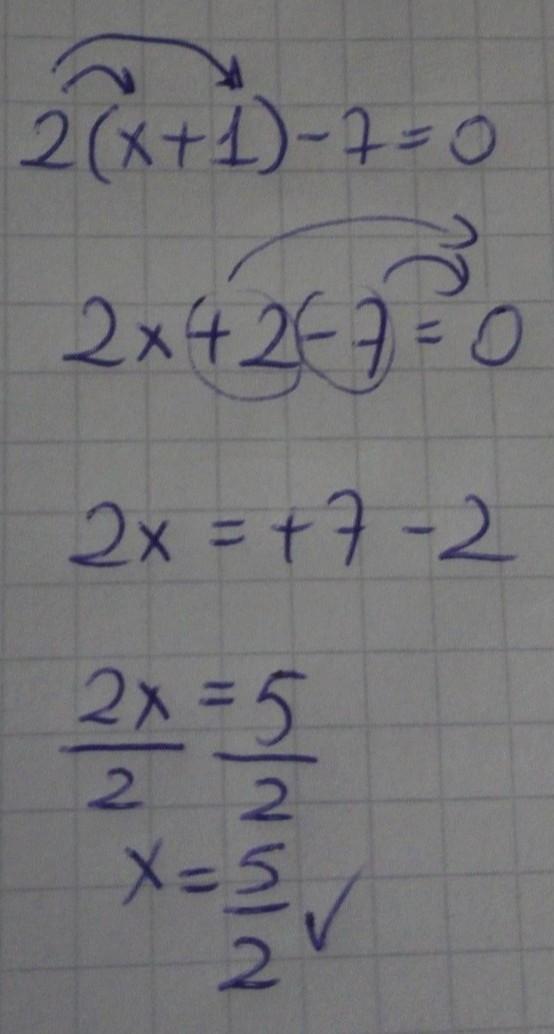 2(x+1)-7=0
2x+2-7=0
2x=+7-2
2x/2=5/2
x=5/2 ✓